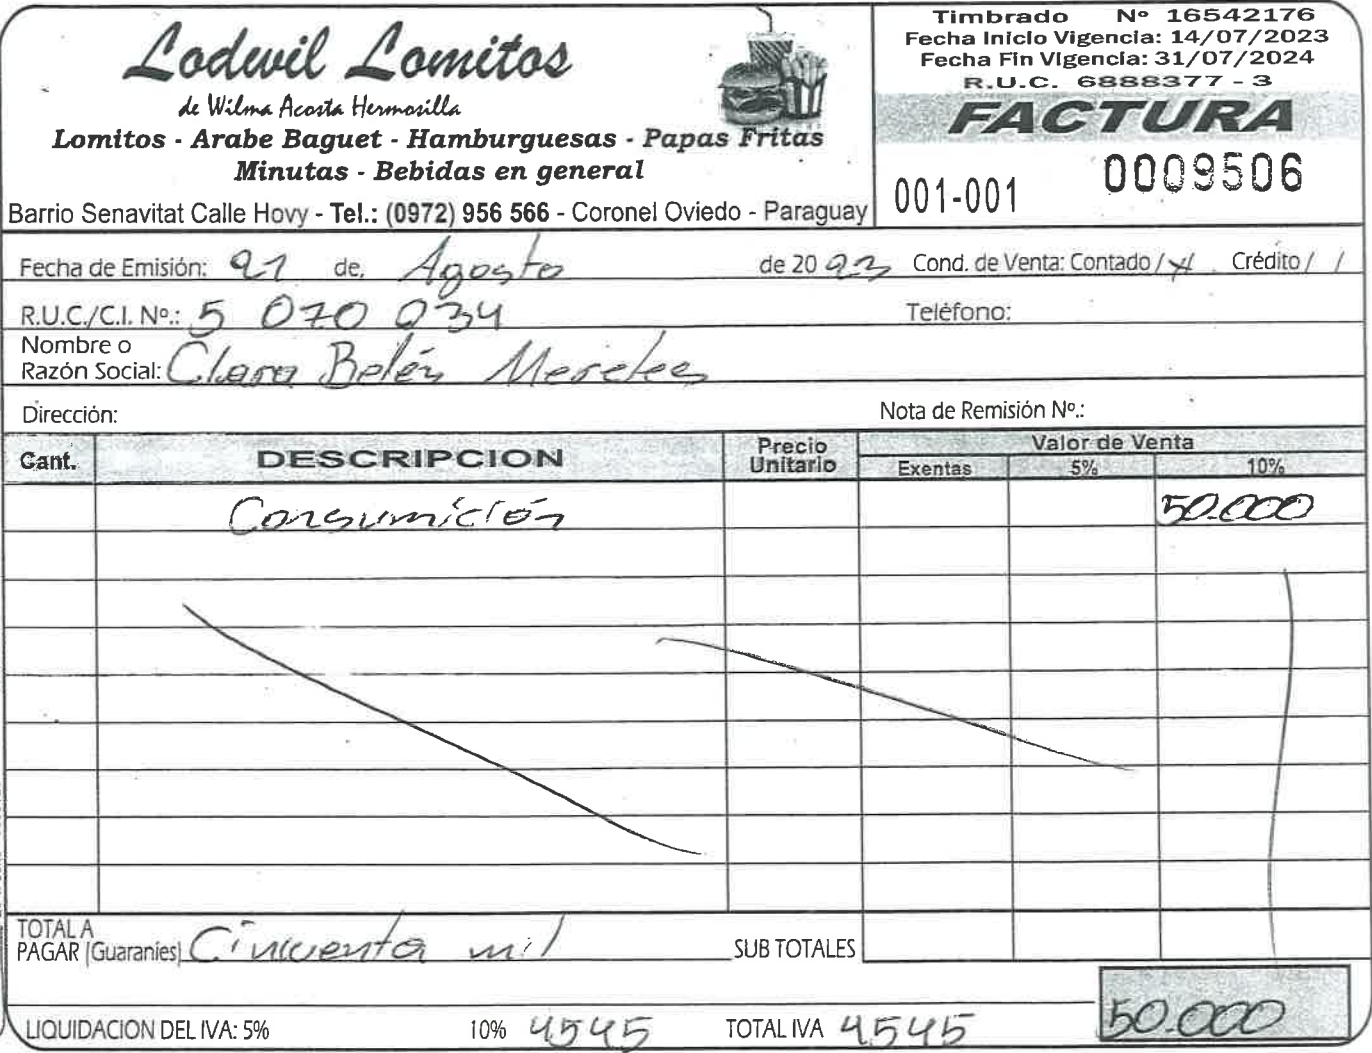 Lodwil Lomitos
de Wilma Acosta Hermosilla
Lomitos - Arabe Baguet - Hamburguesas - Papas Fritas
Minutas - Bebidas en general
Barrio Senavitat Calle Hovy - Tel.: (0972) 956 566 - Coronel Oviedo - Paraguay
Timbrado Nº 16542176
Fecha Inicio Vigencia: 14/07/2023
Fecha Fin Vigencia: 31/07/2024
R.U.C. 6888377 - 3
FACTURA
001-001 0009506
Fecha de Emisión: 21 de, Agosto de 20 23 Cond. de Venta: Contado / x Crédito / /
R.U.C./C.I. Nº.: 5 070 034 Teléfono:
Nombre o
Razón Social: Clara Belén Mereles
Dirección: Nota de Remisión Nº.:
Cant. DESCRIPCION Precio Unitario Valor de Venta
Exentas 5% 10%
Consumición 50.000
TOTAL A
PAGAR (Guaraníes) Cincuenta mil SUB TOTALES
50.000
LIQUIDACION DEL IVA: 5% 10% 4545 TOTAL IVA 4545